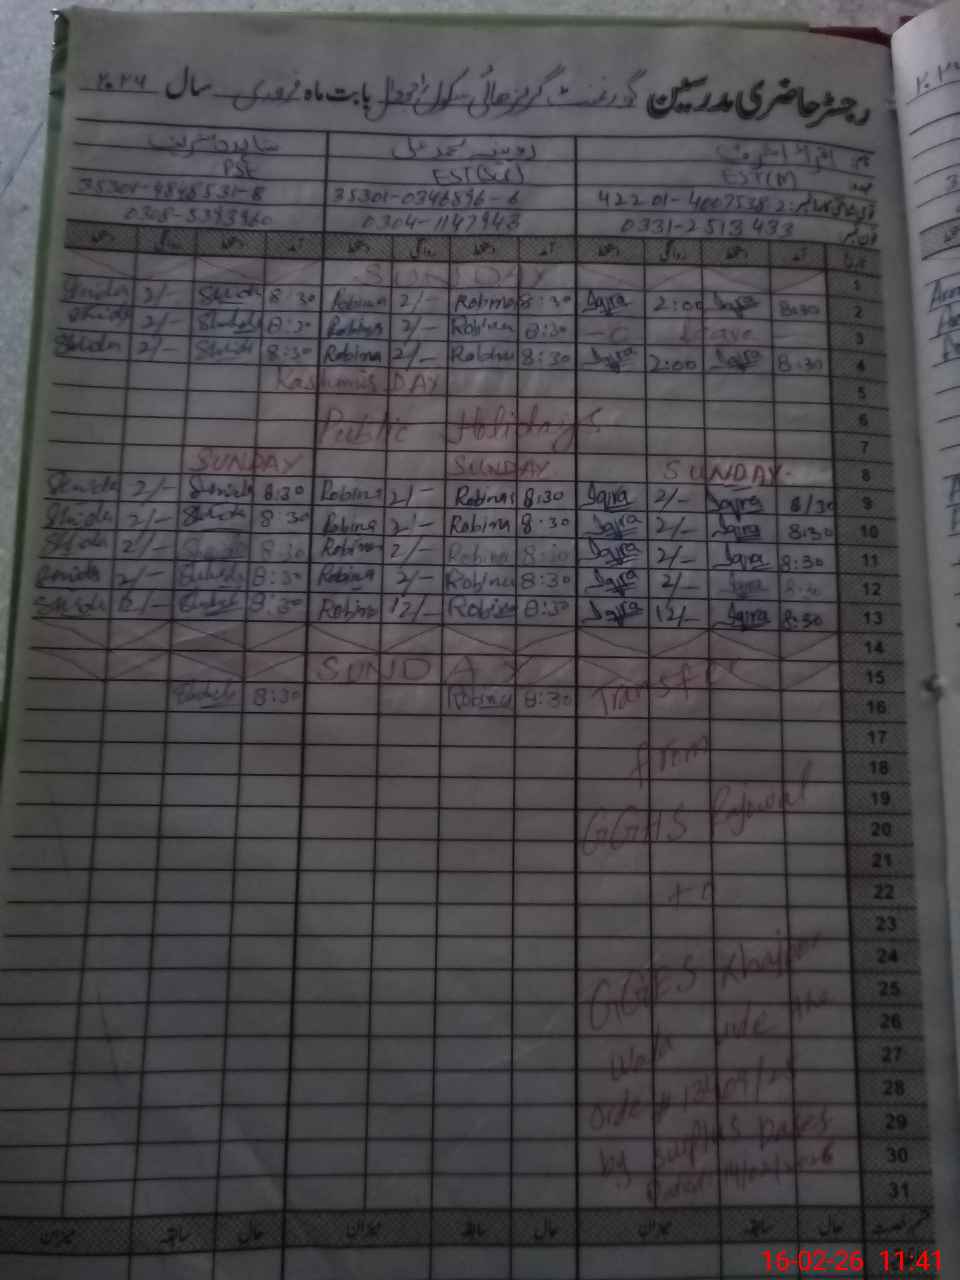 رجسٹر حاضری مدرسین گورنمنٹ گرلز ہائی سکول راجووال بابت ماہ فروری سال ۲۰۲۶
نام: اقراء اشرف روبینہ محمد علی شاہدہ شریف
عہدہ EST(M) EST(Sci) PST
42201-4007538-2 35301-0346896-6 35301-4848531-8
فون نمبر 0331-2513433 0304-1147943 0308-5393960
تاریخ آمد دستخط روانگی دستخط آمد دستخط روانگی دستخط آمد دستخط روانگی دستخط
1 SUNDAY
Shida 2/- Shida 8:30 Robina 2/- Robina 8:30 Iqra 2:00 Iqra 8:30 2
Shida 2/- Shahida 8:30 Robina 2/- Robina 8:30 – C Leave – 3
Shida 2/- Shida 8:30 Robina 2/- Robina 8:30 Iqra 2:00 Iqra 8:30 4
Kashmir DAY 5
Public Holidays 6
7
SUNDAY SUNDAY SUNDAY- 8
Shida 2/- Shida 8:30 Robina 2/- Robina 8:30 Iqra 2/- Iqra 8/30 9
Shida 2/- Shida 8:30 Robina 2/- Robina 8:30 Iqra 2/- Iqra 8:30 10
Shida 2/- Shida 8:30 Robina 2/- Robina 8:30 Iqra 2/- Iqra 8:30 11
Shida 2/- Shahida 8:30 Robina 2/- Robina 8:30 Iqra 2/- Iqra 8:30 12
Shida 12/- Shahida 8:30 Robina 12/- Robina 8:30 Iqra 12/- Iqra 8:30 13
14
SUNDAY 15
Shahida 8:30 Robina 8:30 Transfer 16
17
from 18
19
GGHS Rajowal 20
21
to 22
23
24
GGES Khajoor 25
26
wala vide the 27
28
order # 13409/25 29
by surplus Dated 14/02/2026 30
31
حال سابقہ میزان حال سابقہ میزان حال سابقہ میزان
16-02-26 11:41